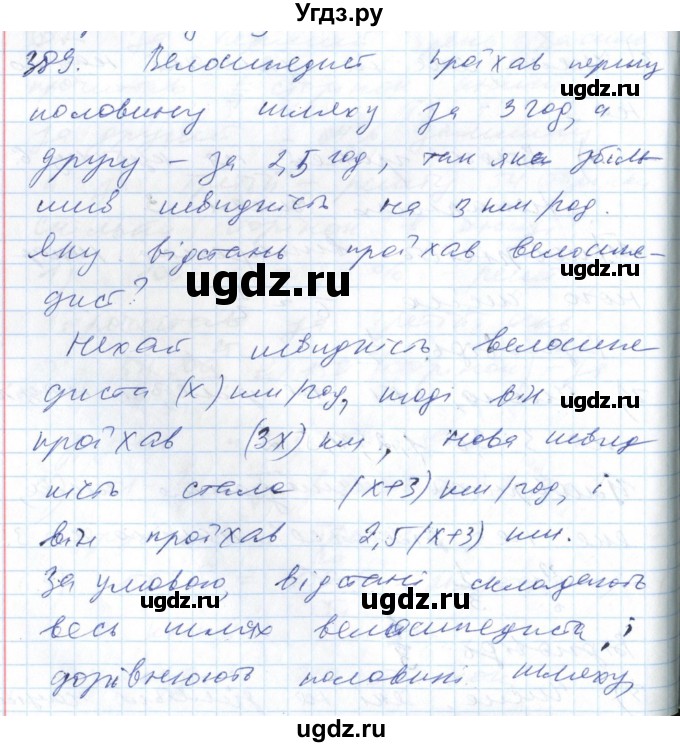 Угдз.ру
389. Велосипедист проїхав першу
половину шляху за 3 год, а
другу – за 2,5 год, так як збіль
шив швидкість на 3 км/год.
Яку відстань проїхав велосипе-
дист?
Нехай швидкість велосипе
диста (х) км/год, тоді він
проїхав (3х) км, нова швид
кість стала (х+3) км/год, і
він проїхав 2,5(х+3) км.
За умовою, відстані складають
весь шлях велосипедиста, і
дорівнюють половині шляху,
ugdz.ru
ugdz.ru
ugdz.ru
ugdz.ru
ugdz.ru
ugdz.ru
ugdz.ru
ugdz.ru
ugdz.ru
ugdz.ru